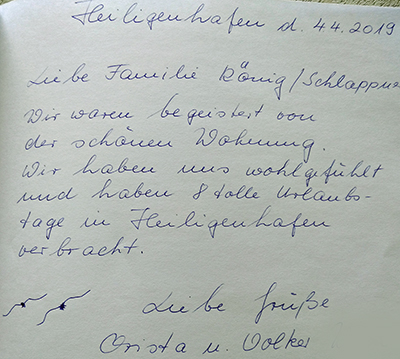 Heiligenhafen d. 4.4.2019
Liebe Familie König/Schlappner
Wir waren begeistert von
der schönen Wohnung.
Wir haben uns wohlgefühlt
und haben 8 tolle Urlaubs-
tage in Heiligenhafen
verbracht.
Liebe Grüße
Christa u. Volker